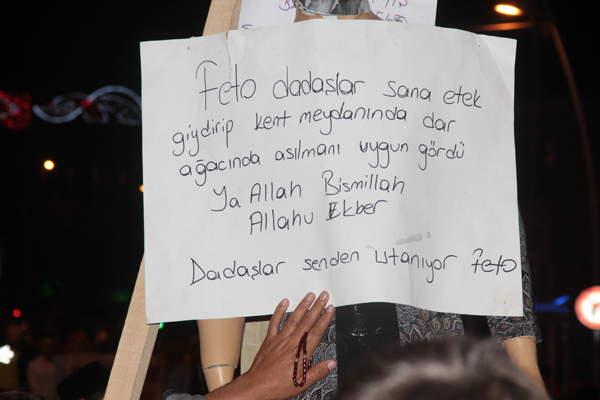 Feto dadaşlar sana etek
giydirip kent meydanında dar
ağacında asılmanı uygun gördü
Ya Allah Bismillah
Allahu Ekber
Dadaşlar senden utanıyor feto